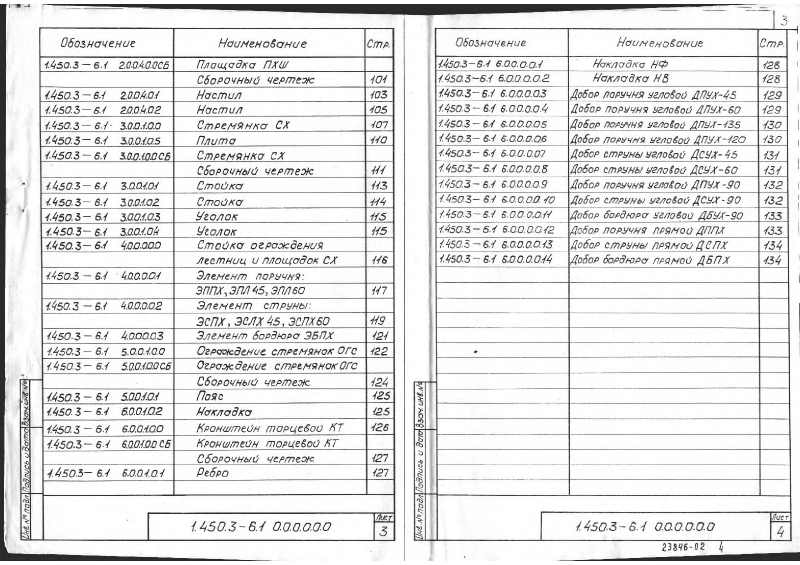 3
Обозначение Наименование Стр.
1.450.3-6.1 2.0.0.4.0.0СБ Площадка ПХШ
Сборочный чертеж 101
1.450.3-6.1 2.0.0.4.0.1 Настил 103
1.450.3-6.1 2.0.0.4.0.2 Настил 105
1.450.3-6.1 3.0.0.1.0.0 Стремянка СХ 107
1.450.3-6.1 3.0.0.1.0.5 Плита 110
1.450.3-6.1 3.0.0.1.0.0СБ Стремянка СХ
Сборочный чертеж 111
1.450.3-6.1 3.0.0.1.0.1 Стойка 113
1.450.3-6.1 3.0.0.1.0.2 Стойка 114
1.450.3-6.1 3.0.0.1.0.3 Уголок 115
1.450.3-6.1 3.0.0.1.0.4 Уголок 115
1.450.3-6.1 4.0.0.0.0.0 Стойка ограждения
лестниц и площадок СХ 116
1.450.3-6.1 4.0.0.0.0.1 Элемент поручня:
ЭППХ, ЭПЛ45, ЭПЛ60 117
1.450.3-6.1 4.0.0.0.0.2 Элемент струны:
ЭСПХ, ЭСЛХ 45, ЭСПХ60 119
1.450.3-6.1 4.0.0.0.0.3 Элемент бордюра ЭБПХ 121
1.450.3-6.1 5.0.0.1.0.0 Ограждение стремянок ОГС 122
1.450.3-6.1 5.0.0.1.0.0СБ Ограждение стремянок ОГС
Сборочный чертеж 124
1.450.3-6.1 5.0.0.1.0.1 Пояс 125
1.450.3-6.1 6.0.0.1.0.2 Накладка 125
1.450.3-6.1 6.0.0.1.0.0 Кронштейн торцевой КТ 126
1.450.3-6.1 6.0.0.1.0.0 СБ Кронштейн торцевой КТ
Сборочный чертеж 127
1.450.3-6.1 6.0.0.1.0.1 Ребро 127
Инв.№ подл. Подпись и дата Взам.инв.№
1.450.3-6.1 0.0.0.0.0.0 Лист
3
Обозначение Наименование Стр.
1.450.3-6.1 6.0.0.0.0.1 Накладка НФ 128
1.450.3-6.1 6.0.0.0.0.2 Накладка НВ 128
1.450.3-6.1 6.0.0.0.0.3 Добор поручня угловой ДПУХ-45 129
1.450.3-6.1 6.0.0.0.0.4 Добор поручня угловой ДПУХ-60 129
1.450.3-6.1 6.0.0.0.0.5 Добор поручня угловой ДПУХ-135 130
1.450.3-6.1 6.0.0.0.0.6 Добор поручня угловой ДПУХ-120 130
1.450.3-6.1 6.0.0.0.0.7 Добор струны угловой ДСУХ-45 131
1.450.3-6.1 6.0.0.0.0.8 Добор струны угловой ДСУХ-60 131
1.450.3-6.1 6.0.0.0.0.9 Добор поручня угловой ДПУХ-90 132
1.450.3-6.1 6.0.0.0.0.10 Добор струны угловой ДСУХ-90 132
1.450.3-6.1 6.0.0.0.0.11 Добор бордюра угловой ДБУХ-90 133
1.450.3-6.1 6.0.0.0.0.12 Добор поручня прямой ДППХ 133
1.450.3-6.1 6.0.0.0.0.13 Добор струны прямой ДСПХ 134
1.450.3-6.1 6.0.0.0.0.14 Добор бордюра прямой ДБПХ 134
Инв.№ подл. Подпись и дата Взам.инв.№
1.450.3-6.1 0.0.0.0.0.0 Лист
4
23846-02 4